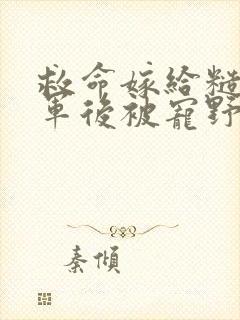 救命嫁給糙
軍後被寵野
秦傾